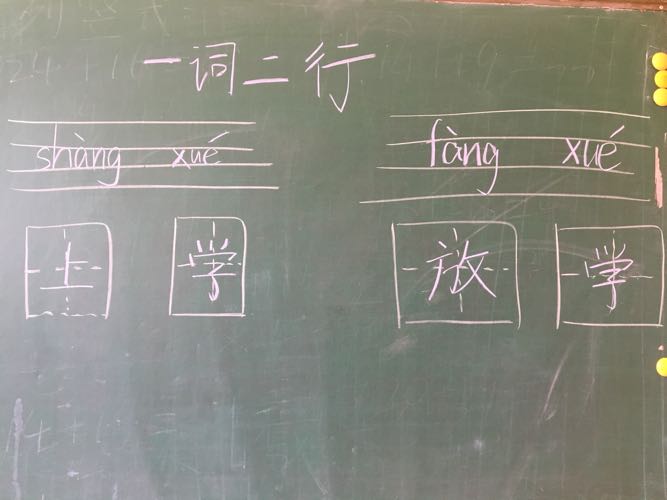 一词二行
shàng xué fàng xué
上学 放学